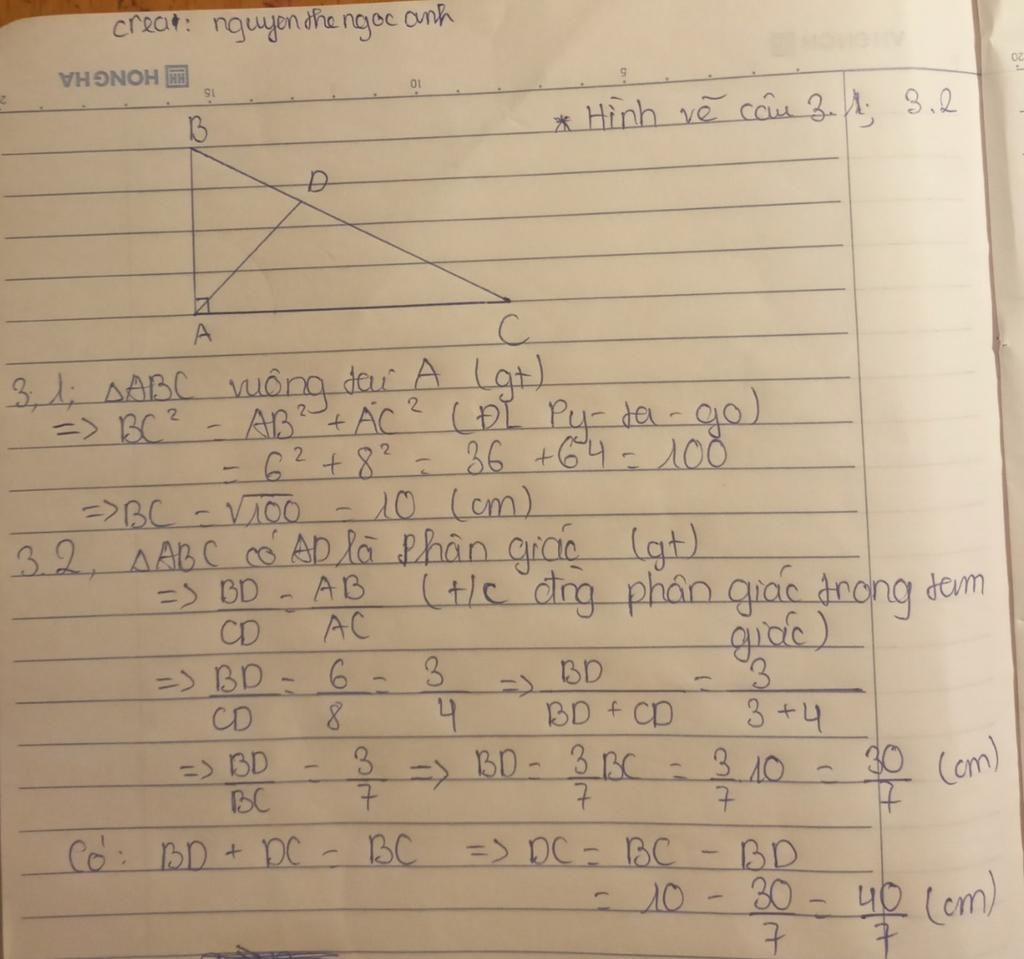 creat: nguyenthengocanh
HONG HA
15 10 5 20
* Hình vẽ câu 3.1; 3.2
B
D
A
C
3,1; △ABC vuông tại A (gt)
=> BC² = AB² + AC² (ĐL Py-ta-go)
= 6² + 8² = 36 + 64 = 100
=> BC = √100 = 10 (cm)
3.2, △ABC có AD là phân giác (gt)
=> BD/CD = AB/AC (t/c đng phân giác trong tam
giác)
=> BD/CD = 6/8 = 3/4 => BD/(BD + CD) = 3/(3+4)
=> BD/BC = 3/7 => BD = 3/7 BC = 3/7 10 = 30/7 (cm)
Có: BD + DC = BC => DC = BC - BD
= 10 - 30/7 = 40/7 (cm)